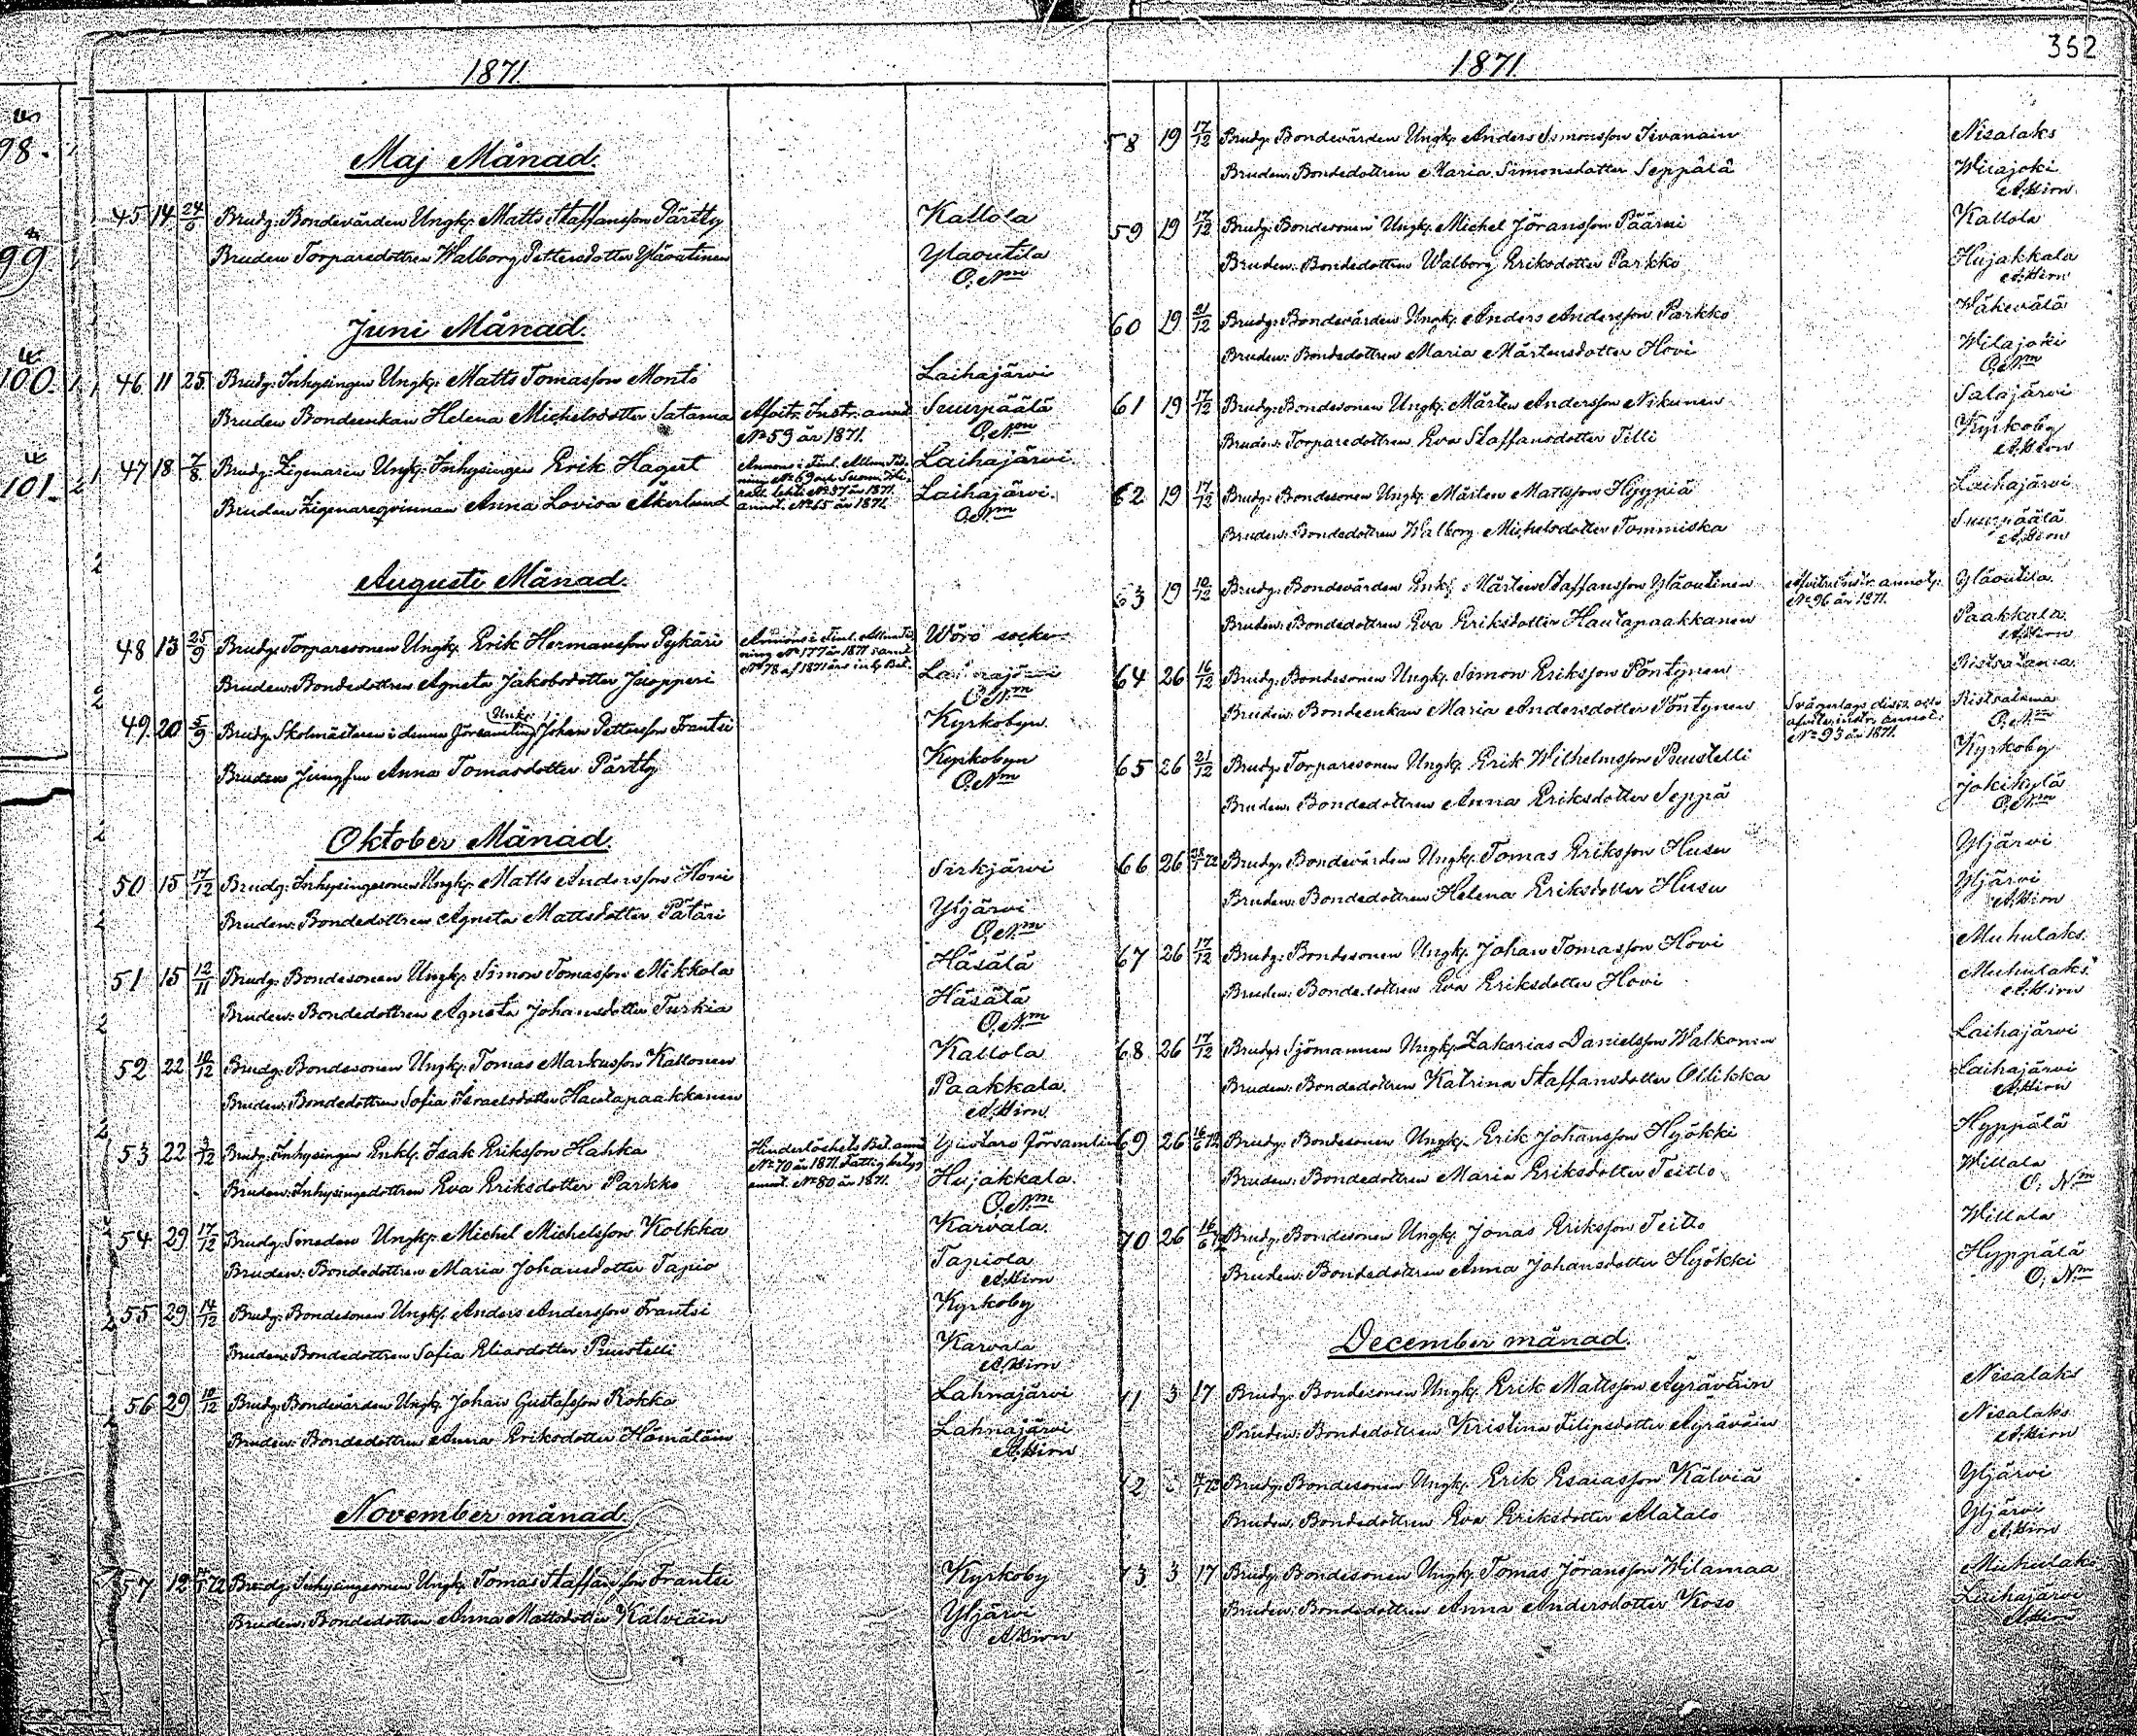 352
1871.
Maj Månad.
45 14 24/6 Brudg: Bondevärden Ungk. Matts Staffansson Pärtty Kallola
Bruden Torparedottren Walborg Pettersdotter Yläoutinen Yläoutila
O. N:m
Juni Månad.
46 11 25. Brudg: Inhysingen Ungk: Matts Tomasson Monto Laihajärvi
Bruden Bondeenkan Helena Michelsdotter Satama Afvitr. Instr. annot Suurpäälä
No 59 år 1871. O. N:m
47 18 7/8. Brudg: Zigenaren Ungk: Inhysingen Erik Hagert Annons i Finl. Allm. Tid- Laihajärvi.
ning No 69 och Suomi.
lehti No 37 år 1871.
Bruden Zigenareqvinnan Anna Lovisa Åkerlund annot. No 65 år 1871. Laihajärvi.
O. N:m
Augusti Månad.
48 13 25/9 Brudg: Torparesonen Ungk. Erik Hermansson Pykäri Annons i Finl. Allm. Tid- Wörå socken
ning No 177 år 1871 samt
No 78 af 1871 års inlp Bet.
Bruden: Bondedottren Agneta Jakobsdotter Jropperi
O. N:m
49. 20 5/9 Brudg: Skolmästaren i denna församling Ungk: Johan Pettersson Frantsi Kyrkobyn
Bruden Jungfru Anna Tomasdotter Pärtty Kyrkobyn
O. N:m
Oktober Månad.
50 15 17/12 Brudg: Inhysingesonen Ungk: Matts Andersson Hovi Sirkjärvi
Bruden: Bondedottren Agneta Mattsdotter Pätäri Yljärvi
O. N:m
51 15 12/11 Brudg: Bondesonen Ungk: Simon Tomasson Mikkola Häsälä
Bruden: Bondedottren Agneta Johansdotter Turkia Häsälä
O. N:m
52 22 10/12 Brudg: Bondesonen Ungk: Tomas Markusson Kallonen Kallola
Bruden: Bondedottren Sofia Israelsdotter Hautapaakkanen Paakkala.
A. Hirn
53 22 3/12 Brudg: Inhysingen Enkl. Isak Eriksson Hahka Hinderlöshets Bet. ann församlin
No 70 år 1871. Fattig betyg
Bruden: Inhysingedottren Eva Eriksdotter Parkko annot. No 80 år 1871. Hujakkala.
O. N:m
54 29 17/12 Brudg: Smeden Ungk: Michel Michelsson Kolkka Karvala.
Bruden: Bondedottren Maria Johansdotter Tapio Tapiola
A. Hirn
55 29 14/12 Brudg: Bondesonen Ungk. Anders Andersson Frantsi Kyrkoby
Bruden: Bondedottren Sofia Eliasdotter Puustelli Karvala
A. Hirn
56 29 10/12 Brudg: Bondevärden Ungk. Johan Gustafsson Rokka Lahnajärvi
Bruden: Bondedottren Anna Eriksdotter Hämäläin Lahnajärvi
A. Hirn
November månad.
57 12 72 Brudg: Inhysingesonen Ungk. Tomas Staffansson Frantsi Kyrkoby
Bruden: Bondedottren Anna Mattsdotter Kälviäin Yljärvi
A. Hirn
1871.
58 19 17/12 Brudg: Bondevärden Ungk. Anders Simonsson Iivanain Nisalaks
Bruden: Bondedottren Maria Simonsdotter Seppälä Wilajoki
A. Hirn
59 19 17/12 Brudg: Bondesonen Ungk. Michel Jöransson Päärni Kallola
Bruden: Bondedottren Walborg Eriksdotter Parkko Hujakkala
A. Hirn
60 19 21/12 Brudg: Bondevärden Ungk. Anders Andersson Parkko Wäkevälä
Bruden: Bondedottren Maria Mårtensdotter Hovi Wilajoki
O. N:m
61 19 17/12 Brudg: Bondesonen Ungk. Mårten Andersson Nikunen Salajärvi
Bruden: Torparedottren Eva Staffansdotter Tilli Kyrkoby
A. Hirn
62 19 17/12 Brudg: Bondesonen Ungk. Mårten Mattsson Hyypiä Laihajärvi
Bruden: Bondedottren Walborg Michelsdotter Tommiska Suurpäälä
A. Hirn
63 19 10/12 Brudg: Bondevärden Enkl. Mårten Staffansson Yläoutinen Afvitr. Instr. annot: Yläoutila
No 96 år 1871.
Bruden: Bondedottren Eva Eriksdotter Hautapaakkanen Paakkala.
A. Hirn
64 26 16/12 Brudg: Bondesonen Ungk. Simon Eriksson Pöntynen Ristsatama.
Bruden: Bondeenkan Maria Andersdotter Pöntynen Svågerlags disp. och Ristsatama
afvitr. instr. annot: O. N:m
No 93 år 1871.
65 26 21/12 Brudg: Torparesonen Ungk. Erik Wilhelmsson Puustelli Kyrkoby
Bruden: Bondedottren Anna Eriksdotter Seppä Jokikylä
O. N:m
66 26 72 Brudg: Bondevärden Ungk. Tomas Eriksson Husu Yljärvi
Bruden: Bondedottren Helena Eriksdotter Husu Yljärvi
A. Hirn
67 26 17/12 Brudg: Bondesonen Ungk. Johan Tomasson Hovi Muhulaks.
Bruden: Bondedottren Eva Eriksdotter Hovi Muhulaks.
A. Hirn
68 26 17/12 Brudg: Sjömannen Ungk. Zakarias Danielsson Walkonen Laihajärvi
Bruden: Bondedottren Katrina Staffansdotter Ollikka Laihajärvi
A. Hirn
69 26 16/6 72 Brudg: Bondesonen Ungk. Erik Johansson Hyökki Hyppälä
Bruden: Bondedottren Maria Eriksdotter Teitto Willala
O. N:m
70 26 16/6 72 Brudg: Bondesonen Ungk. Jonas Eriksson Teitto Willala
Bruden: Bondedottren Anna Johansdotter Hyökki Hyppälä
O. N:m
December månad.
71 3 17 Brudg: Bondesonen Ungk. Erik Mattsson Äyräväin Nisalaks
Bruden: Bondedottren Kristina Filipsdotter Äyräväin Nisalaks
A. Hirn
72 3 Brudg: Bondesonen Ungk. Erik Esaiasson Kälviä Yljärvi
Bruden: Bondedottren Eva Eriksdotter Matalo Yljärvi
A. Hirn
73 3 17 Brudg: Bondesonen Ungk. Tomas Jöransson Wilamaa Muhulaks
Bruden: Bondedottren Anna Andersdotter Koso Laihajärvi
A. Hirn
98.
99
100.
101.